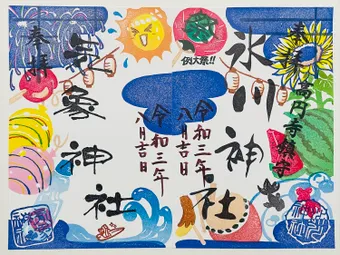 東京高円寺鎮守
氷川神社
例大祭!!
令和三年
八月吉日
奉拝
気象神社
令和三年
八月吉日